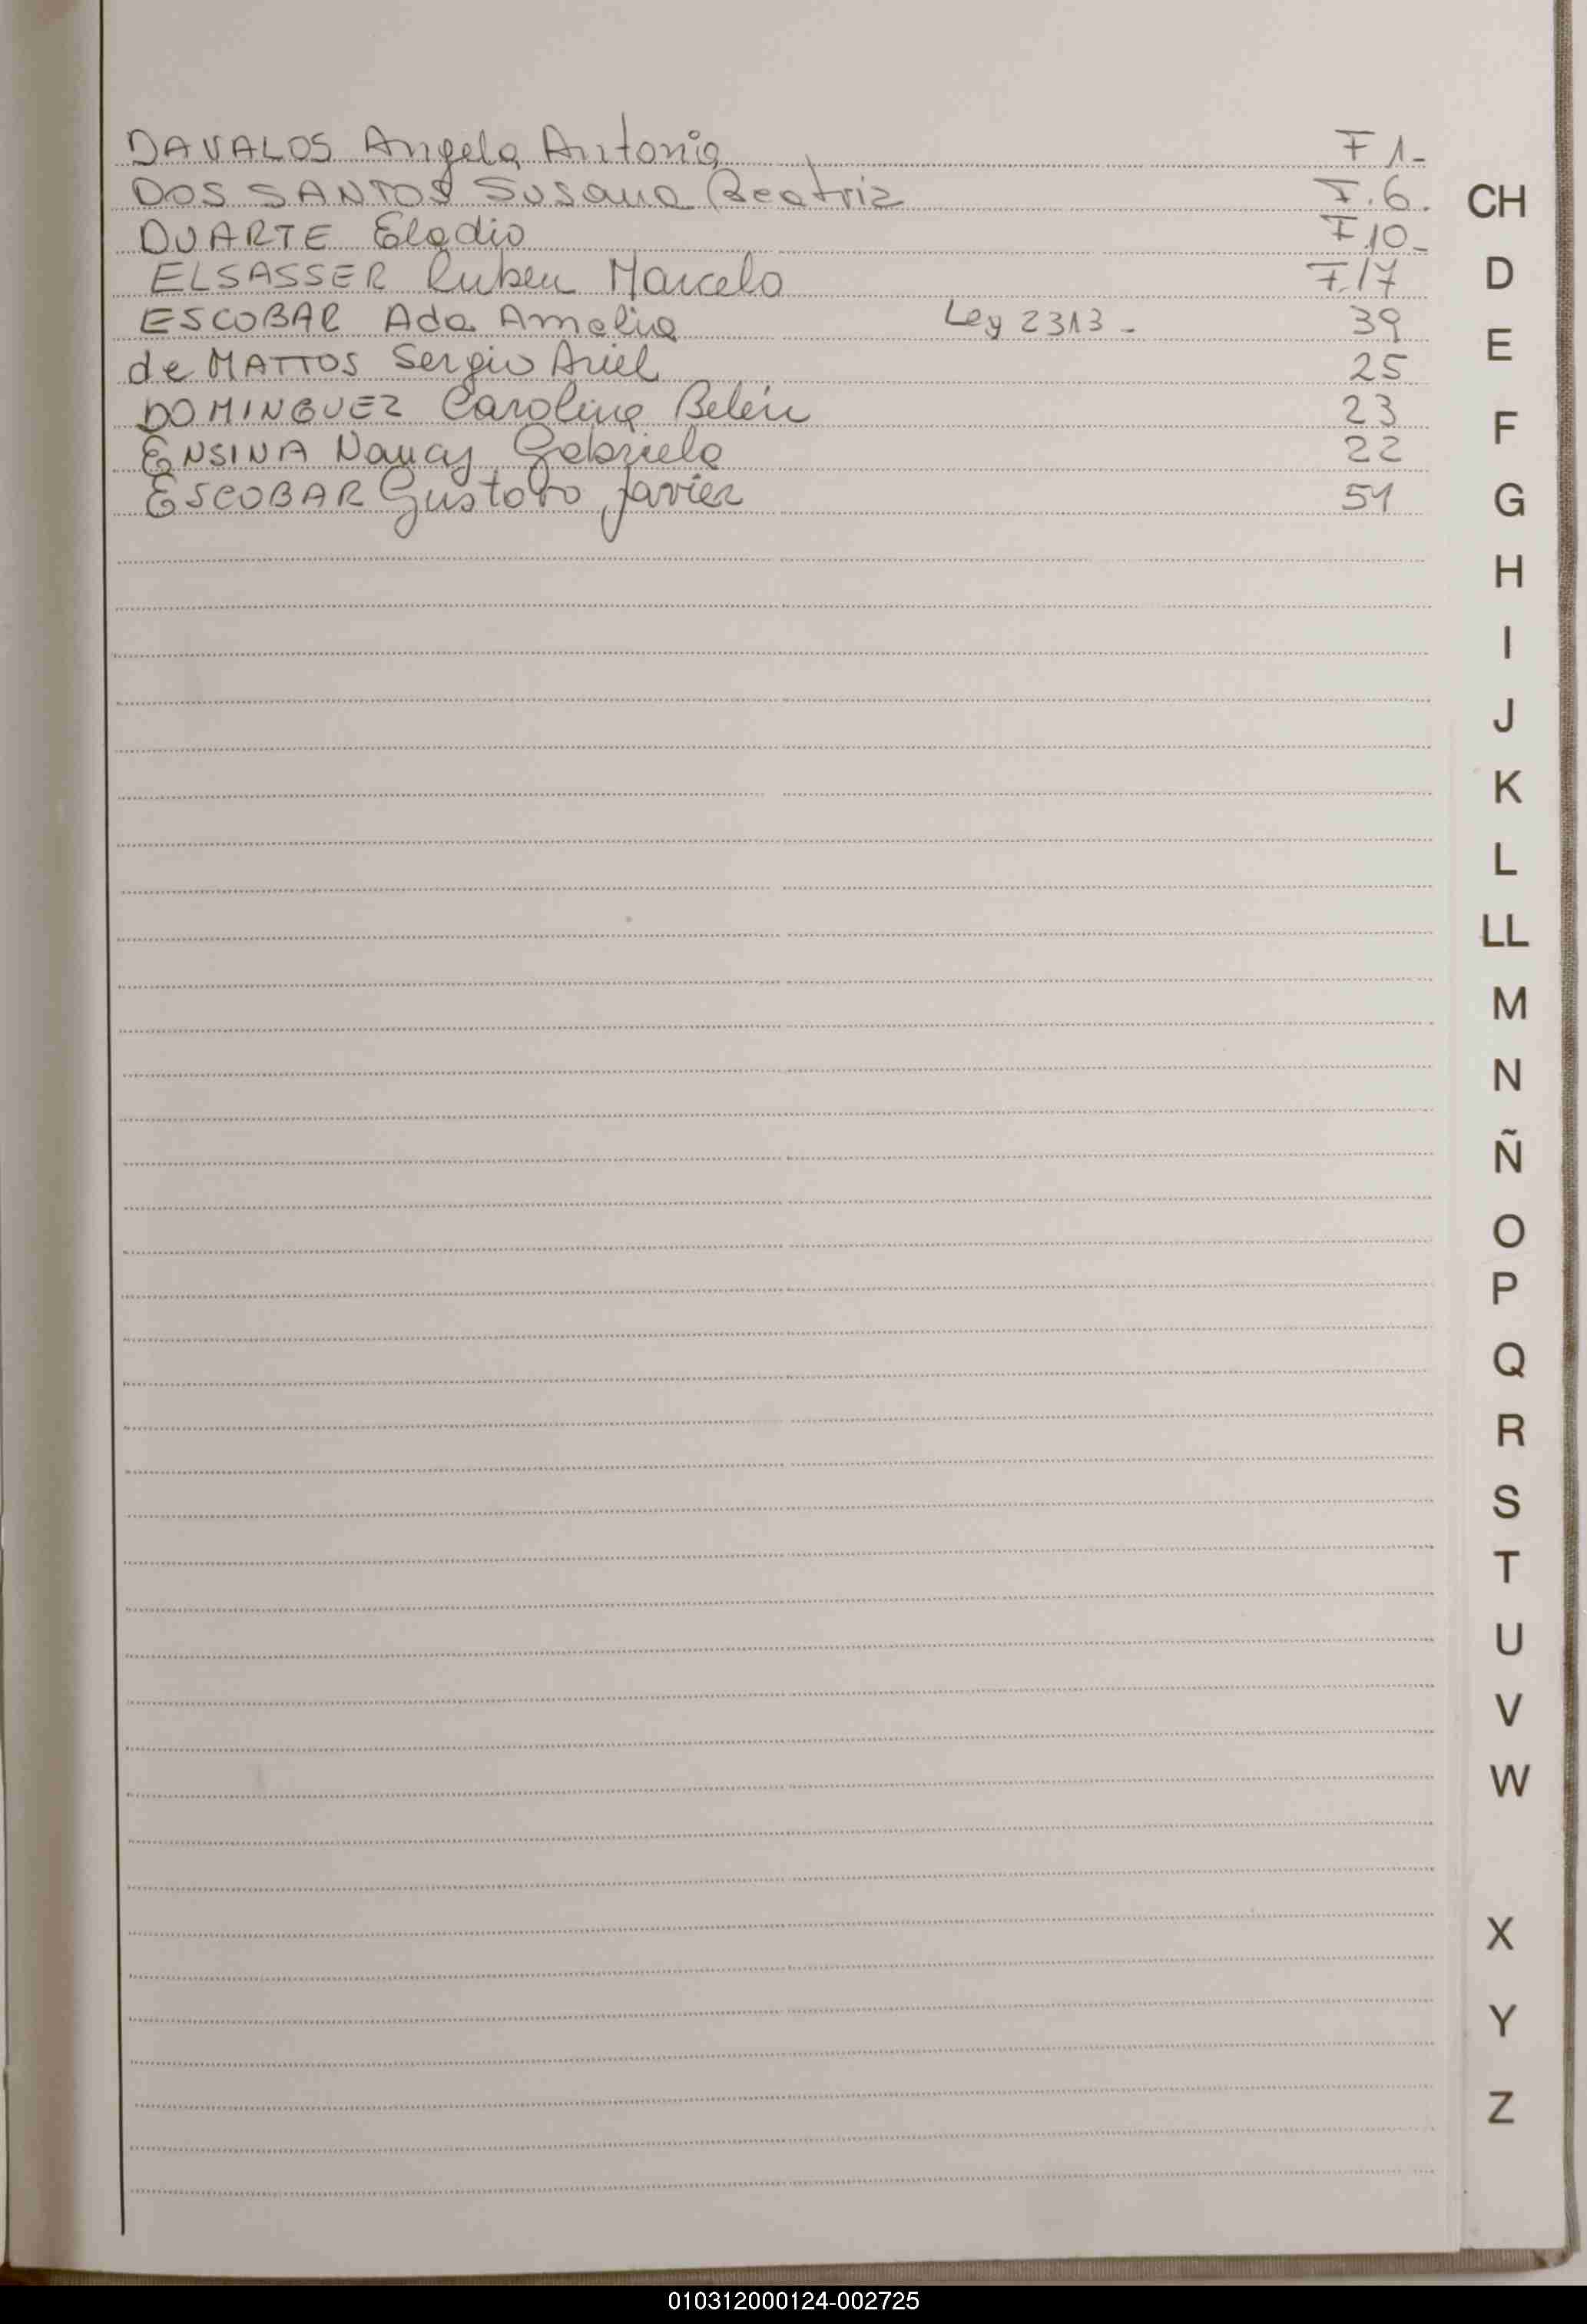 DAVALOS Angela Antonia F 1-
DOS SANTOS Susana Beatriz F. 6.
DUARTE Eladio F 10-
ELSASSER Ruben Marcelo F. 17
ESCOBAR Ada Amelia Ley 2313- 39
de MATTOS Sergio Ariel 25
DOMINGUEZ Carolina Belén 23
ENSINA Nancy Gabriela 22
ESCOBAR Gustavo Javier 51
CH
D
E
F
G
H
I
J
K
L
LL
M
N
Ñ
O
P
Q
R
S
T
U
V
W
X
Y
Z
010312000124-002725